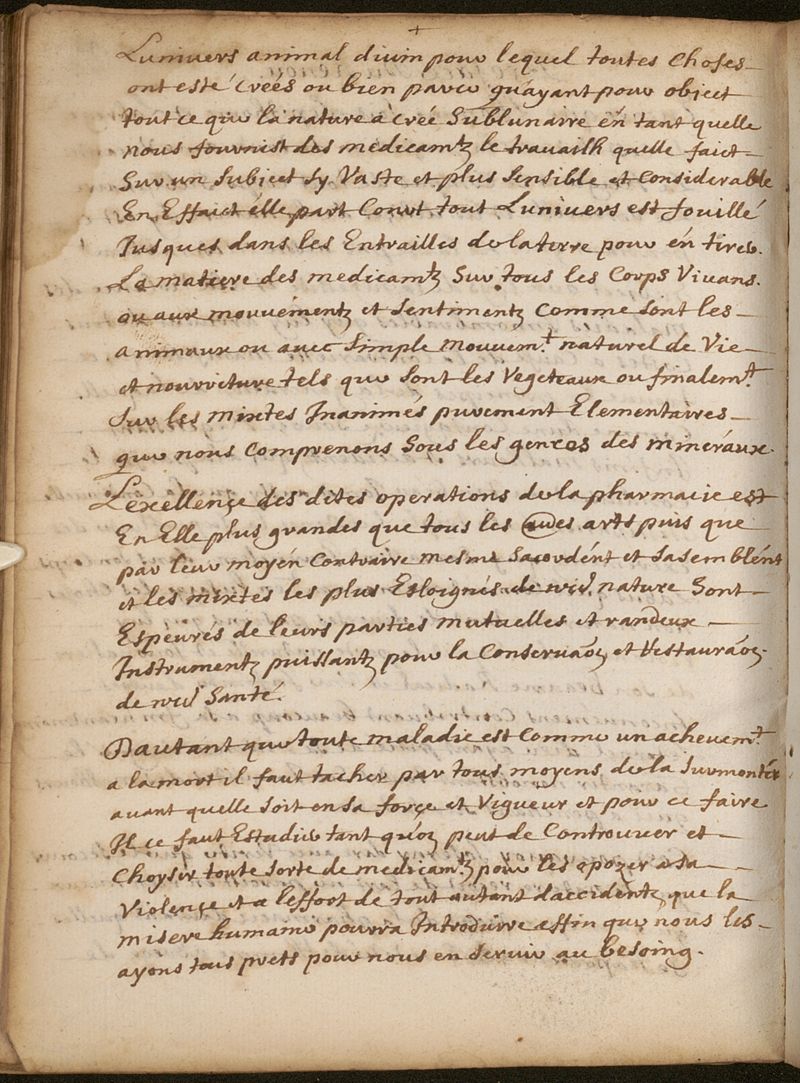 Lunivers animal divin pour lequel toutes choses
ont esté créés ou bien parce quayant pour object
tout ce que la nature a créé Sublunaire en tant quelle
nous fournist des medicamtz le travailh quelle faict
Sur un Subject sy Vaste et plus Sensible et Considerable
En Effaict elle part Court tout Lunivers est fouillé
Jusques dans les Entrailles de la terre pour en tirer
La matiere des medicamtz Sur tous les Corps Vivans.
ou aux mouvementz et sentimentz Comme sont les
animaux ou avec Simple mouvemt naturel de Vie
et nourriture tels que sont les Vegeteaux ou finalemt
Sur les mixtes Inanimés purement Elementaires
que nous Comprenons Sous les genres des mineraux.
Lexellençe des dites operations de la pharmacie est
En Elle plus grandes que tous les arts puis que
par leur moyén Contraire mesme Sacordént et sasemblént
et les mixtes les plus Esloignés de nre nature Sont
Espeurés de leurs parties mutuelles et randeux
Instrumentz puissantz pour la Conservaõn et Restauraõn
de nre Santé.
Dautant que toute maladie est Comme un achevemt
a la mort il faut tacher par tous moyens de la Surmonter
avant quelle soit en sa forçe et Vigueur et pour ce faire
Il ce faut Estudier tant quon peut de Controuver et
Choysir toute sorte de medicamtz pour les opozer a sa
Violençe et a leffoot de tout autant daccidentz que la
misere humaine pourra Introduire affin que nous les
ayons tous prets pour nous en servir au besoing.